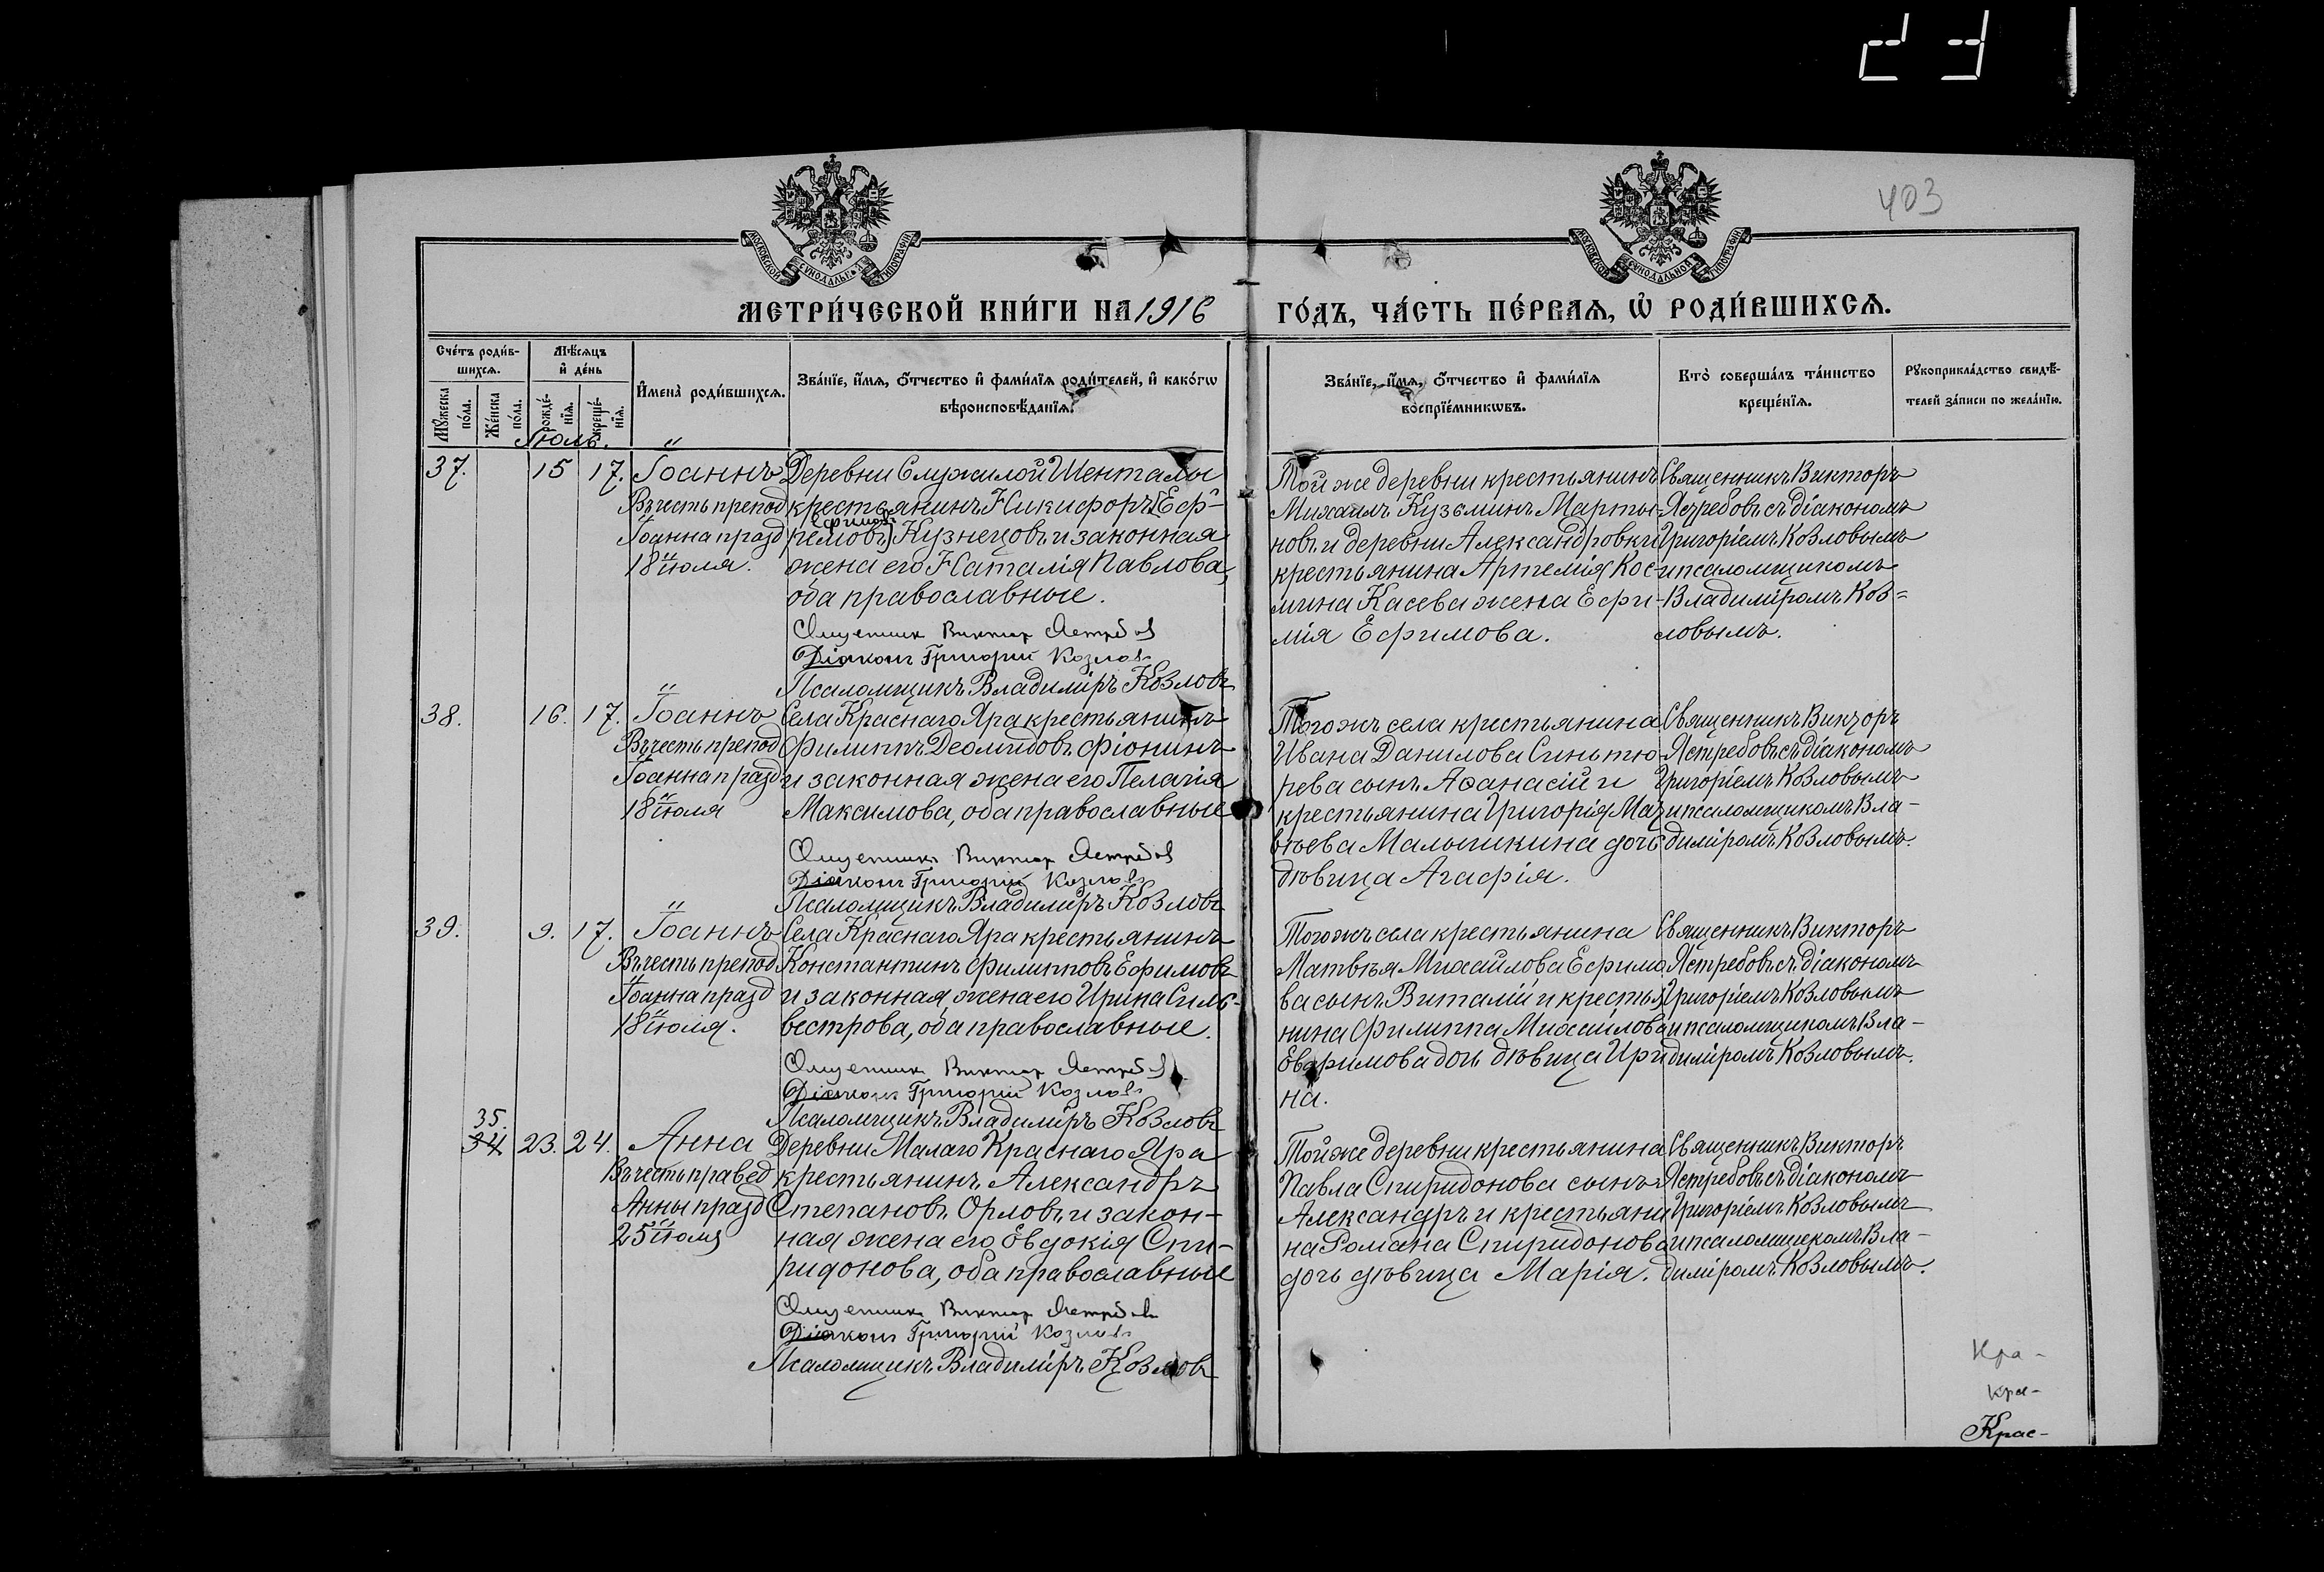 231
403
МОСКОВСКОЙ СѴНОДАЛЬНОЙ ТИПОГРАФІИ
МОСКОВСКОЙ СѴНОДАЛЬНОЙ ТИПОГРАФІИ
МЕТРИ́ЧЕСКОЙ КНИ́ГИ НА 1916 ГО́ДЪ, ЧА́СТЬ ПЕ́РВАѦ, Ѽ РОДИ́ВШИХСѦ.
Сче́тъ роди́в-
шихсѧ.
Мѣ́сѧцъ
и҆ де́нь
Мꙋ́жеска
по́ла.
Же́нска
по́ла.
рожде́-
нїѧ.
креще́-
нїѧ.
И҆мена̀ роди́вшихсѧ.
Зва́нїе, и҆́мѧ, ѻ҆́тчество и҆ фами́лїѧ роди́телей, и҆ како́гѡ
вѣроисповѣ́данїѧ.
Зва́нїе, и҆́мѧ, ѻ҆́тчество и҆ фами́лїѧ
воспрїе́мникѡвъ.
Кто̀ соверша́лъ та́инство
креще́нїѧ.
Рꙋкоприкла́дство свидѣ́-
телей за́писи по жела́нїю.
Іюль.
37.
15
17.
Іоаннъ
Въ честь препод
Іоанна празд
18 іюля.
Деревни Служилой Шенталы
крестьянинъ Никифоръ [Еф-
Ефимовъ
ремовъ] Кузнецовъ и законная
жена его Наталія Павлова,
оба православные.
Священникъ Викторъ Ястребовъ
Діаконъ Григорій Козловъ
Псаломщикъ Владиміръ Козловъ
Той же деревни крестьянинъ
Михаилъ Кузьминъ Марты-
новъ и деревни Александровки
крестьянина Артемія Кос-
мина Касева жена Ефи-
мія Ефимова.
Священникъ Викторъ
Ястребовъ съ діакономъ
Григоріемъ Козловымъ
и псаломщикомъ
Владиміромъ Коз=
ловымъ.
38.
16.
17.
Іоаннъ
Въ честь препод
Іоанна празд
18 іюля
Села Краснаго Яра крестьянинъ
Филиппъ Деомидовъ Фіонинъ
и законная жена его Пелагія
Максимова, оба православные
Священникъ Викторъ Ястребовъ
Діаконъ Григорій Козловъ
Псаломщикъ Владиміръ Козловъ
Того жъ села крестьянина
Ивана Данилова Синьтю-
рева сынъ Аѳанасій и
крестьянина Григорія Мат
вѣева Малышкина дочь
дѣвица Агафія.
Священникъ Викторъ
Ястребовъ съ діакономъ
Григоріемъ Козловымъ
и псаломщикомъ Вла-
диміромъ Козловымъ.
39.
9.
17.
Іоаннъ
Въ честь препод
Іоанна празд
18 іюля.
Села Краснаго Яра крестьянинъ
Константинъ Филипповъ Ефимовъ
и законная жена его Ирина Силь-
вестрова, оба православные.
Священникъ Викторъ Ястребовъ
Діаконъ Григорій Козловъ
Псаломщикъ Владиміръ Козловъ
Того жъ села крестьянина
Матвѣя Михайлова Ефимо
ва сынъ Виталій и крестья
нина Филиппа Михайлова
Евфимова дочь дѣвица Ири
на.
Священникъ Викторъ
Ястребовъ съ діакономъ
Григоріемъ Козловымъ
и псаломщикомъ Вла-
диміромъ Козловымъ.
35.
34
23.
24.
Анна
Въ честь правед
Анны празд
25 іюля
Деревни Малаго Краснаго Яра
крестьянинъ Александръ
Степановъ Орловъ и закон-
ная жена его Евдокія Спи-
ридонова, оба православные
Священникъ Викторъ Ястребовъ
Діаконъ Григорій Козловъ
Псаломщикъ Владиміръ Козловъ
Той же деревни крестьянина
Павла Спиридонова сынъ
Александръ и крестьяни
на Романа Спиридонова
дочь дѣвица Марія.
Священникъ Викторъ
Ястребовъ съ діакономъ
Григоріемъ Козловымъ
и псаломщикомъ Вла-
диміромъ Козловымъ.
Кра-
кра-
Крас-